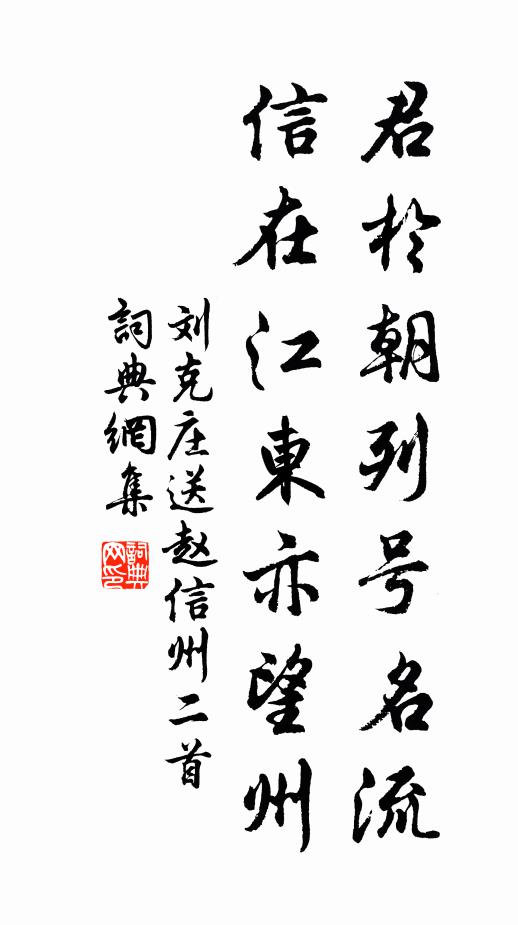 君於朝列号名流
信在江東亦望州
刘克庄送赵信州二首
詞典網集
詞典网印